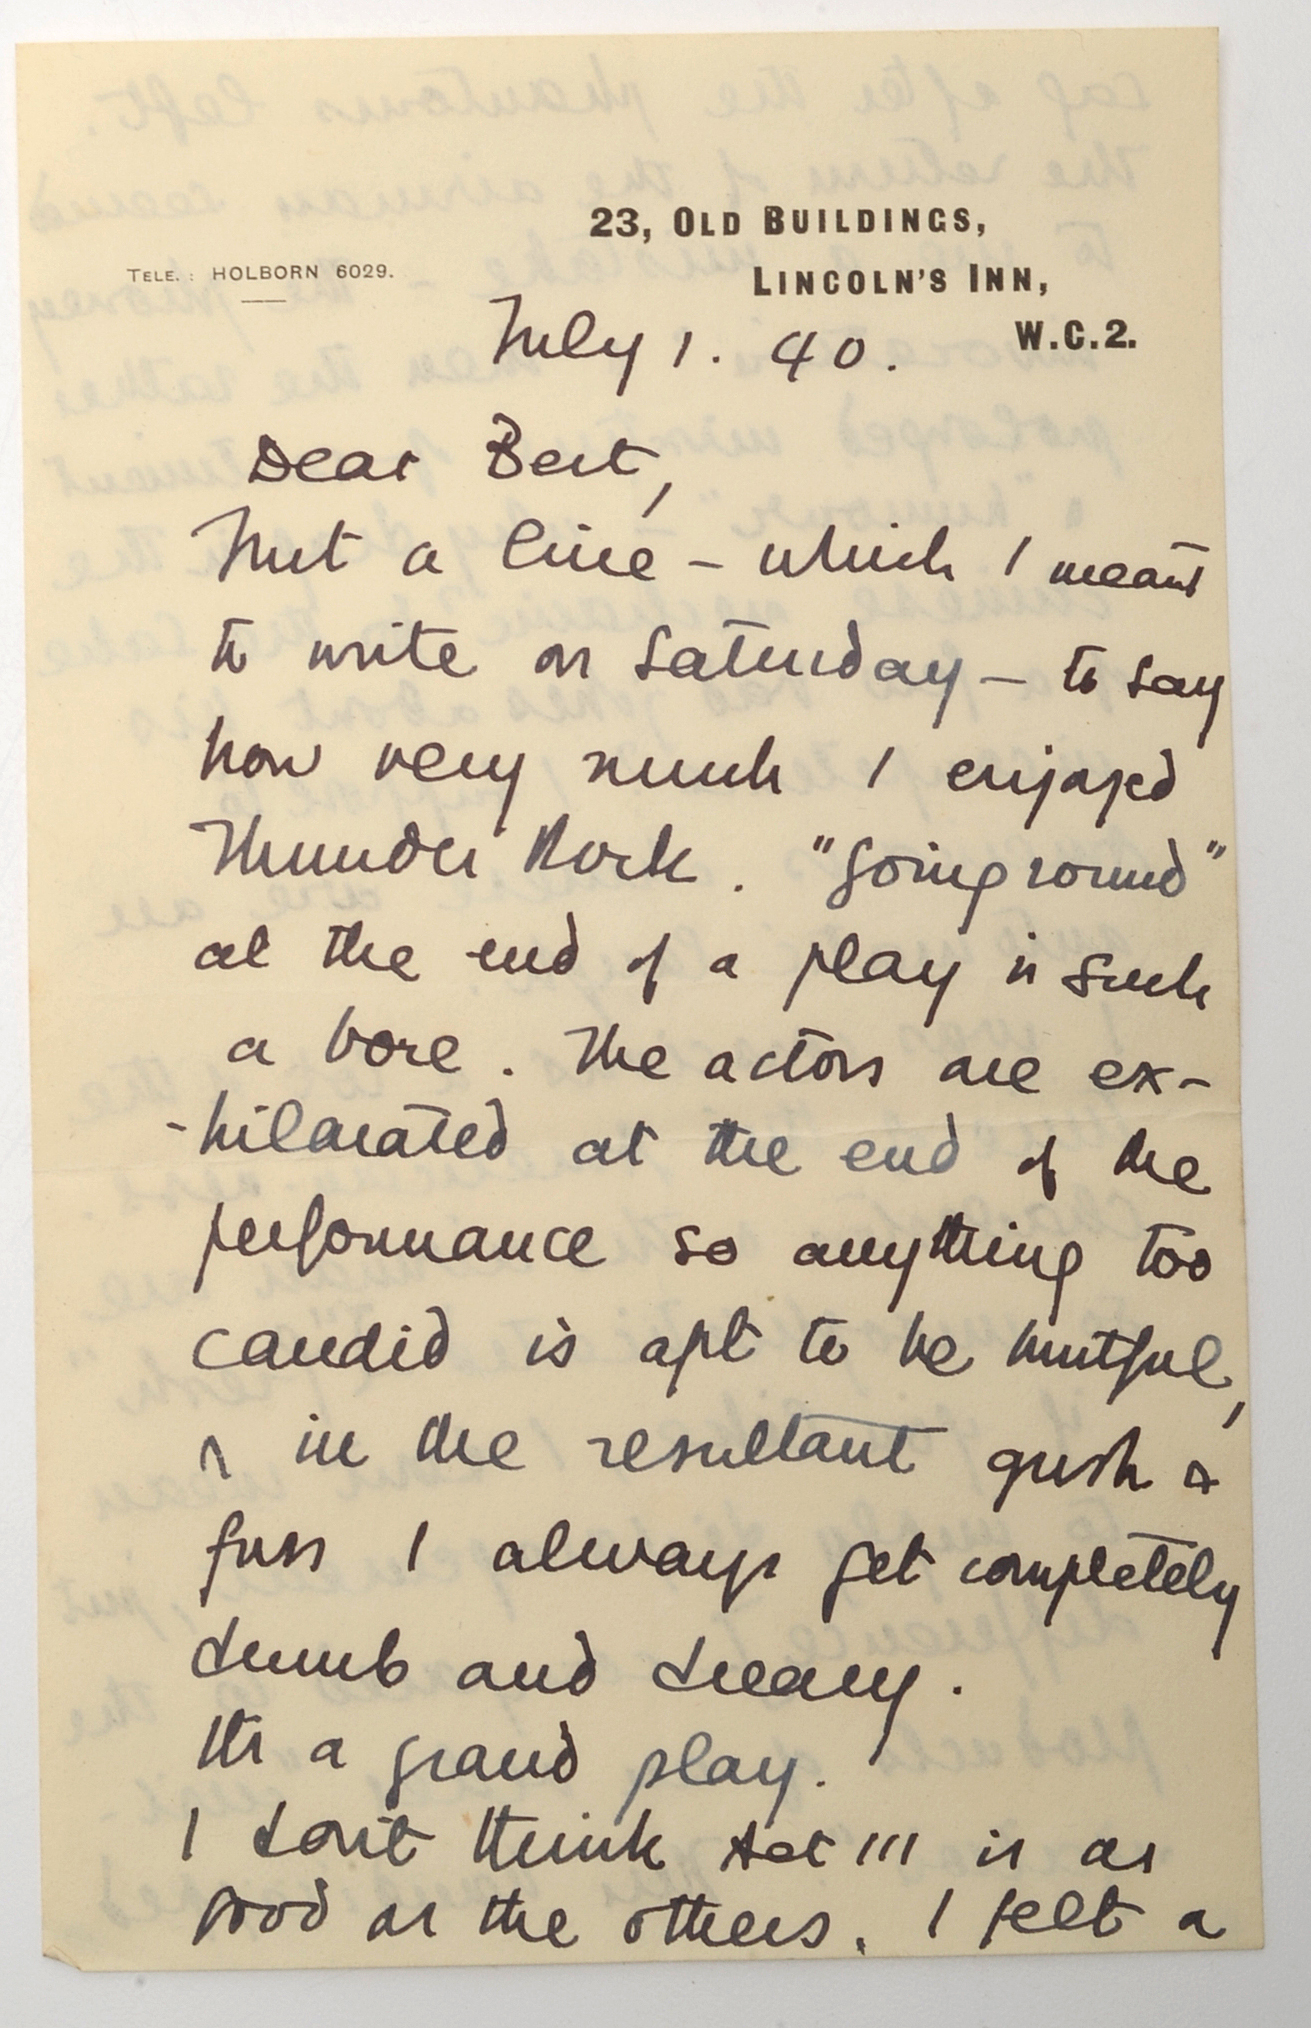 23, OLD BUILDINGS,
TELE.: HOLBORN 6029.
LINCOLN'S INN,
W.C.2.
July 1. 40.
Dear Bert,
Just a line – which I meant
to write on Saturday – to say
how very much I enjoyed
Thunder Rock. "Going round"
at the end of a play is such
a bore. The actors are ex-
-hilarated at the end of the
performance so anything too
candid is apt to be hurtful,
& in the resultant gush &
fuss I always get completely
dumb and dreary.
It's a grand play.
I don't think Act III is as
good as the others. I felt a